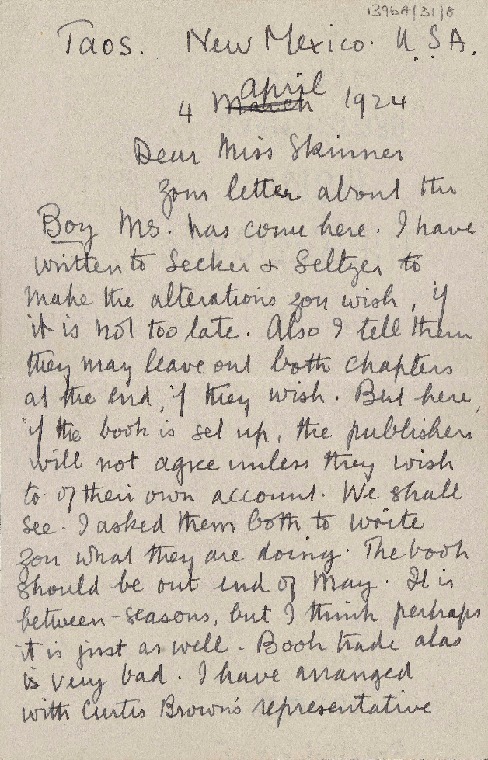 1396A/31/8
Taos. New Mexico. U.S.A.
4 March april 1924
Dear Miss Skinner
Your letter about the
Boy MS. has come here. I have
written to Secker & Seltzer to
make the alterations you wish, if
it is not too late. Also I tell them
they may leave out both chapters
at the end, if they wish. But here,
if the book is set up, the publishers
will not agree unless they wish
to of their own account. We shall
see. I asked them both to write
you what they are doing. The book
should be out end of May. It is
between-seasons, but I think perhaps
it is just as well. Book trade alas
is very bad. I have arranged
with Curtis Brown's representative